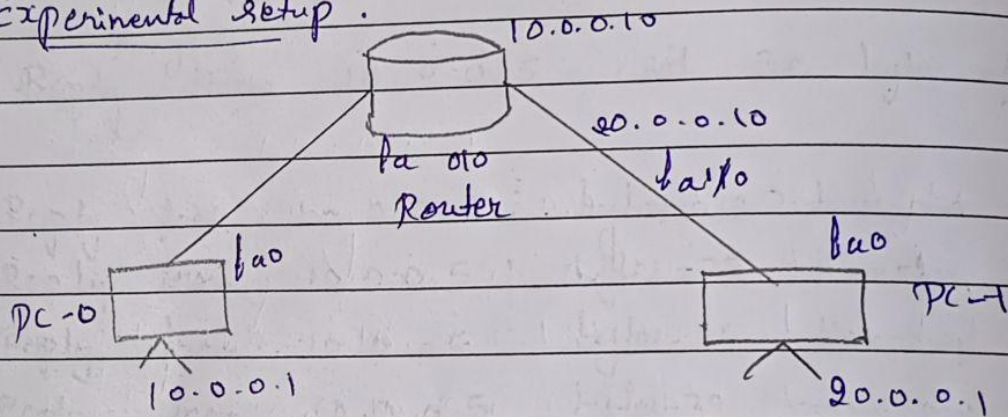 Experimental setup.
10.0.0.10
20.0.0.10
fa 0/0
fa1/0
Router
fa0
fa0
PC-0
PC-1
10.0.0.1
20.0.0.1